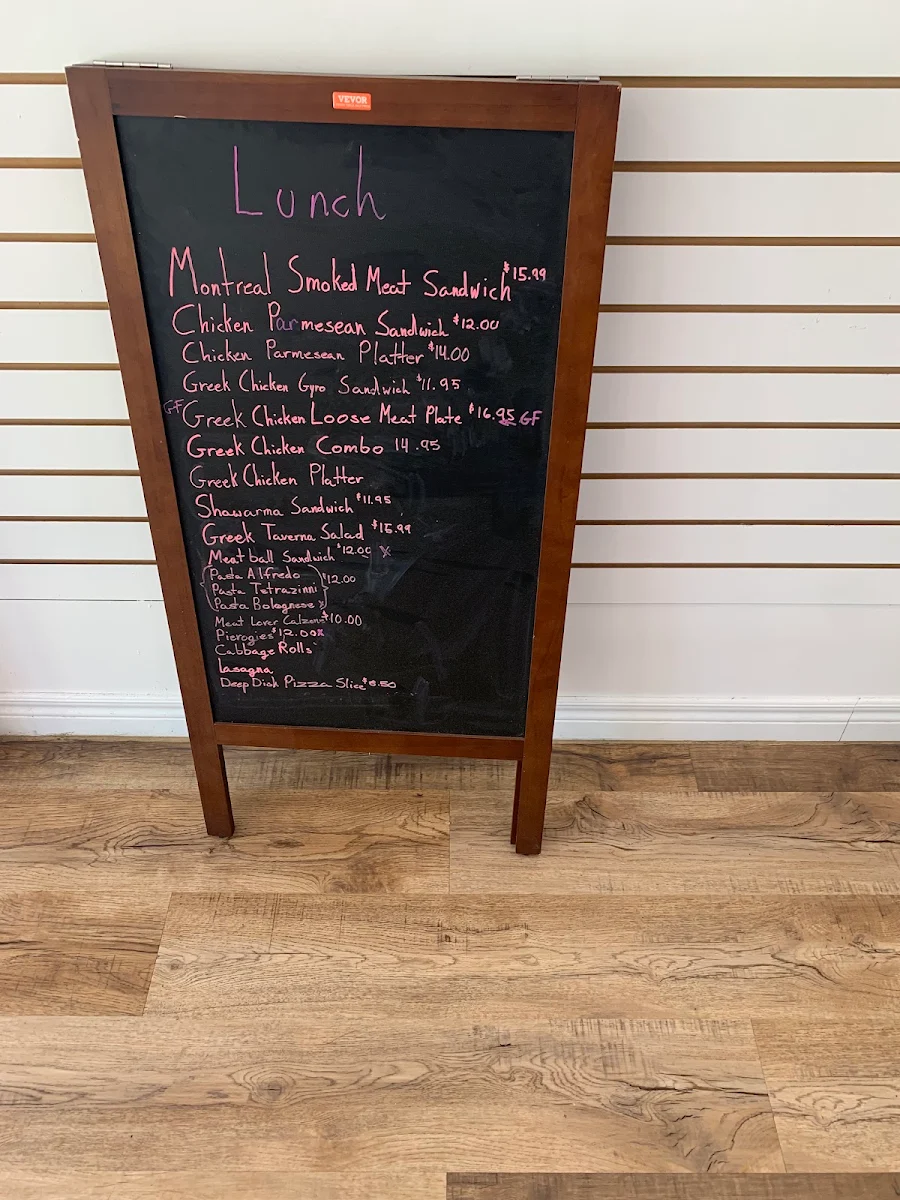 VEVOR
Lunch
Montreal Smoked Meat Sandwich $15.99
Chicken Parmesean Sandwich $12.00
Chicken Parmesean Platter $14.00
Greek Chicken Gyro Sandwich $11.95
GF Greek Chicken Loose Meat Plate $16.95 GF
Greek Chicken Combo 14.95
Greek Chicken Platter
Shawarma Sandwich $11.95
Greek Taverna Salad $15.99
Meatball Sandwich $12.00 x
Pasta Alfredo
Pasta Tetrazinni $12.00
Pasta Bolognese
Meat Lover Calzone $10.00
Pierogies $12.00 x
Cabbage Rolls
Lasagna
Deep Dish Pizza Slice $6.50